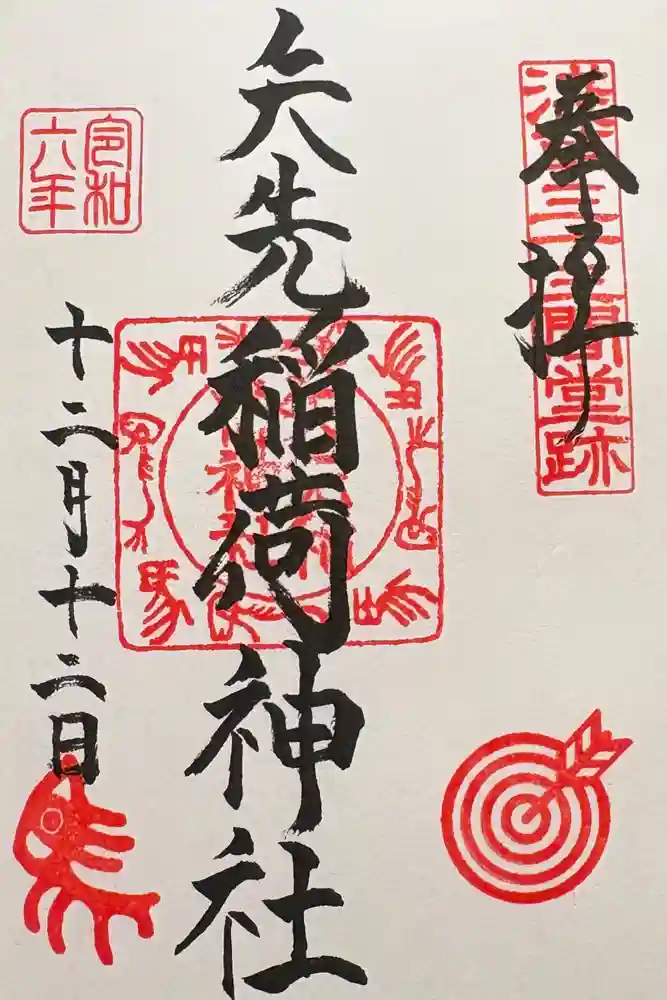 奉拝
浅草三十三間堂跡
矢先稲荷神社
令和六年
十二月十二日
馬